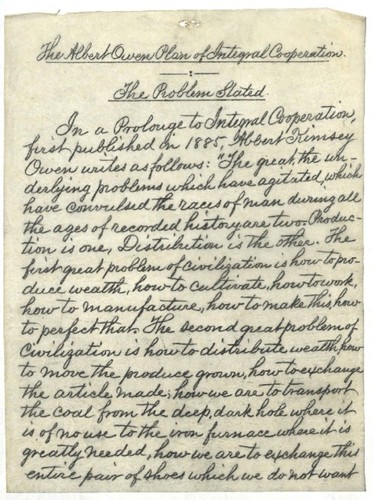 The Albert Owen Plan of Integral Cooperation.
The Problem Stated.
In a Prolouge to Integral Cooperation,
first published in 1885, Albert Kimsey
Owen writes as follows: "The great, the un-
derlying problems which have agitated, which
have convulsed the races of man during all
the ages of recorded history are two. Produc-
tion is one, Distribution is the other. The
first great problem of civilization is how to pro-
duce wealth, how to cultivate, how to work,
how to manufacture, how to make this, how
to perfect that. The second great problem of
Civilization is how to distribute wealth, how
to move the produce grown, how to exchange
the article made; how we are to transport
the coal from the deep, dark hole where it
is of no use to the iron furnace where it is
greatly needed, how we are to exchange this
entire pair of shoes which we do not want